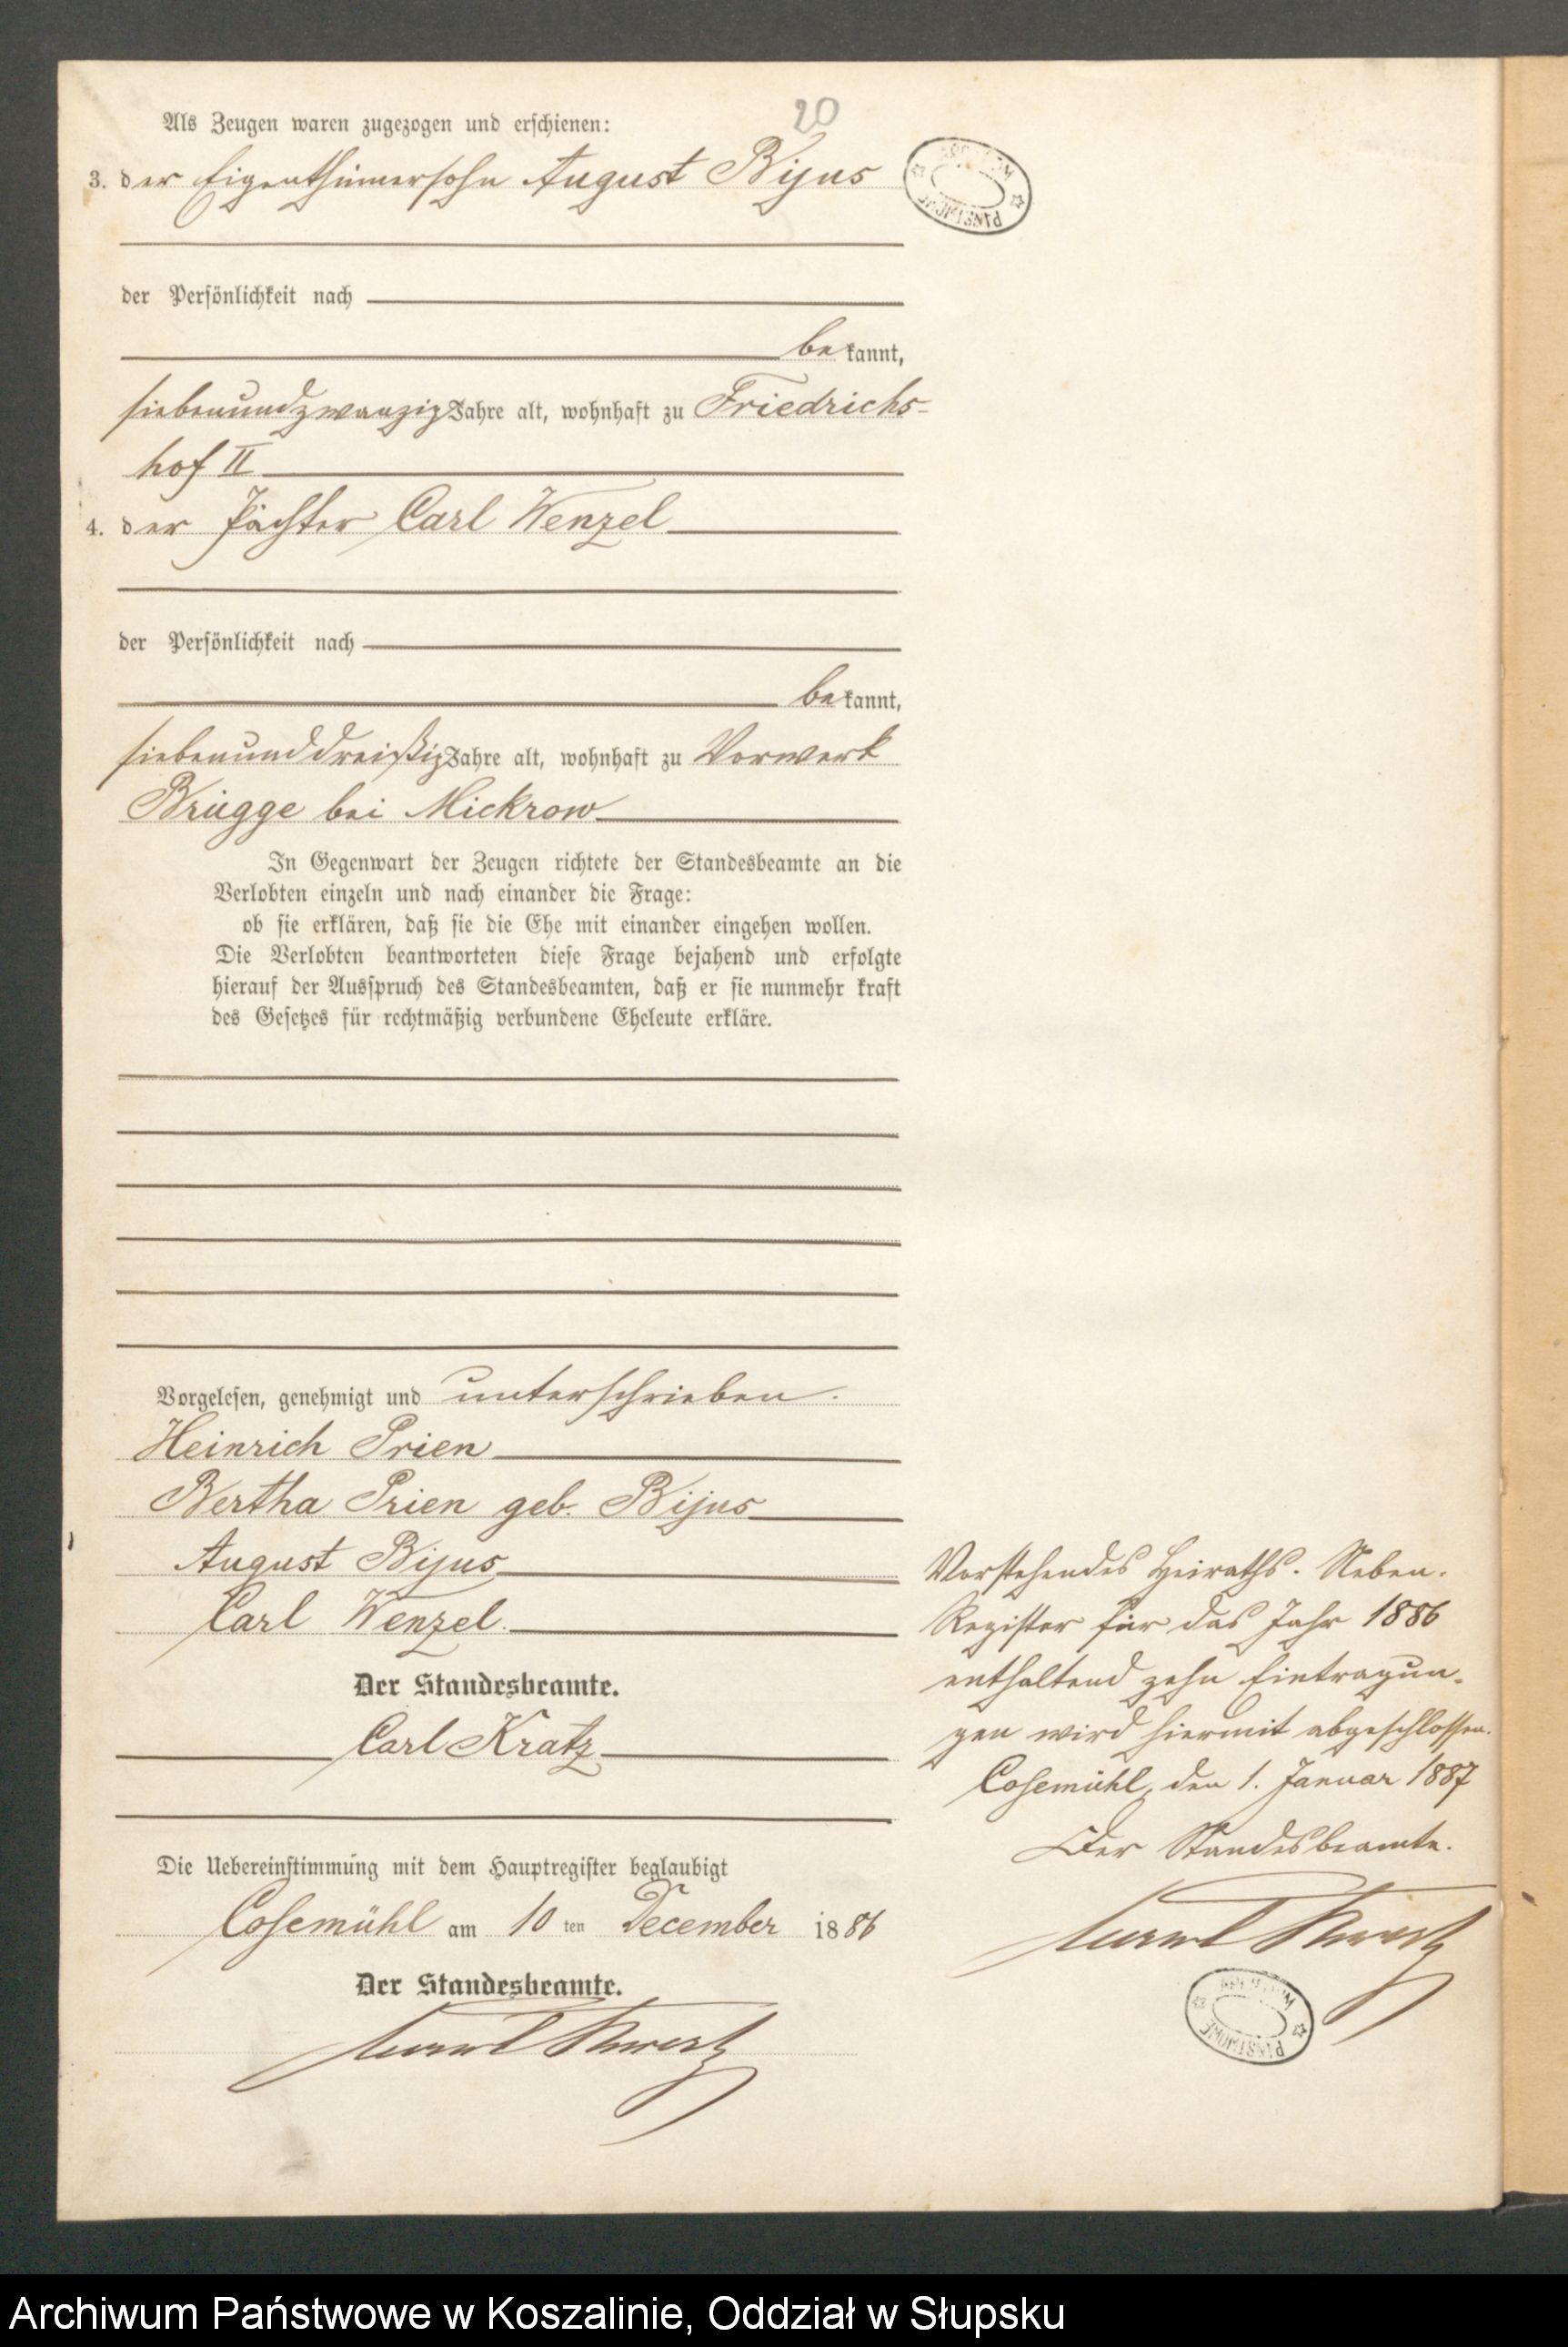 20
Als Zeugen waren zugezogen und erschienen:
3. der Eigenthümersohn August Bijus
der Persönlichkeit nach
bekannt,
siebenundzwanzig Jahre alt, wohnhaft zu Friedrichs-
hof II
4. der Pächter Carl Wenzel
der Persönlichkeit nach
bekannt,
siebenunddreißig Jahre alt, wohnhaft zu Vorwerk
Brügge bei Mickrow
In Gegenwart der Zeugen richtete der Standesbeamte an die
Verlobten einzeln und nach einander die Frage:
ob sie erklären, daß sie die Ehe mit einander eingehen wollen.
Die Verlobten beantworteten diese Frage bejahend und erfolgte
hierauf der Ausspruch des Standesbeamten, daß er sie nunmehr kraft
des Gesetzes für rechtmäßig verbundene Eheleute erkläre.
Vorgelesen, genehmigt und unterschrieben.
Heinrich Prien
Bertha Prien geb. Bijus
August Bijus
Carl Wenzel.
Der Standesbeamte.
Carl Kratz
Die Uebereinstimmung mit dem Hauptregister beglaubigt
Cosemühl am 10 ten December 1886
Der Standesbeamte.
Vorstehendes Heiraths-Neben-
Register für das Jahr 1886
enthaltend zehn Eintragun-
gen wird hiermit abgeschlossen.
Cosemühl, den 1. Januar 1887
Der Standesbeamte.
ARCHIWUM PAŃSTWOWE
Archiwum Państwowe w Koszalinie, Oddział w Słupsku